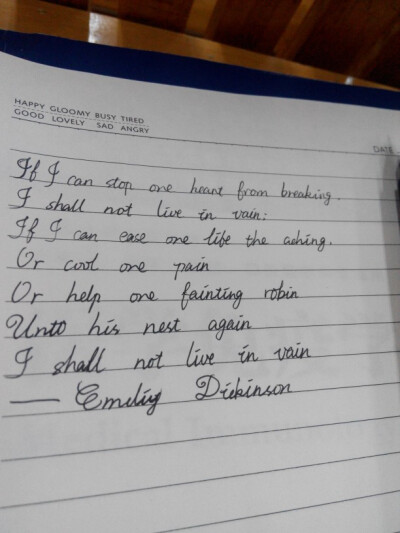 HAPPY GLOOMY BUSY TIRED
GOOD LOVELY SAD ANGRY
DATE
If I can stop one heart from breaking.
I shall not live in vain:
If I can ease one life the aching.
Or cool one pain
Or help one fainting robin
Unto his nest again
I shall not live in vain
— Emiliy Dickinson